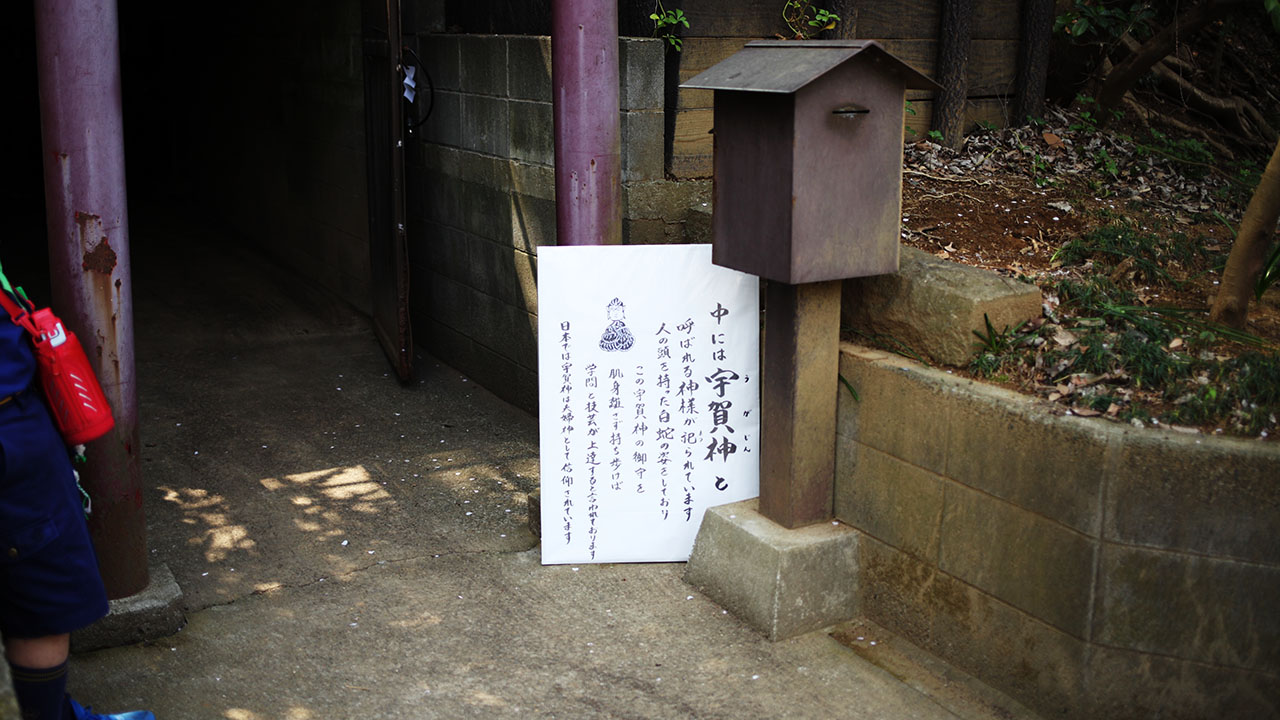 中には宇賀神と
うがじん
呼ばれる神様が祀られています
まつ
人の頭を持った白蛇の姿をしており
この宇賀神の御守を
肌身離さず持ち歩けば
学問と技芸が上達すると言われております
日本では宇賀神は夫婦神として信仰されています